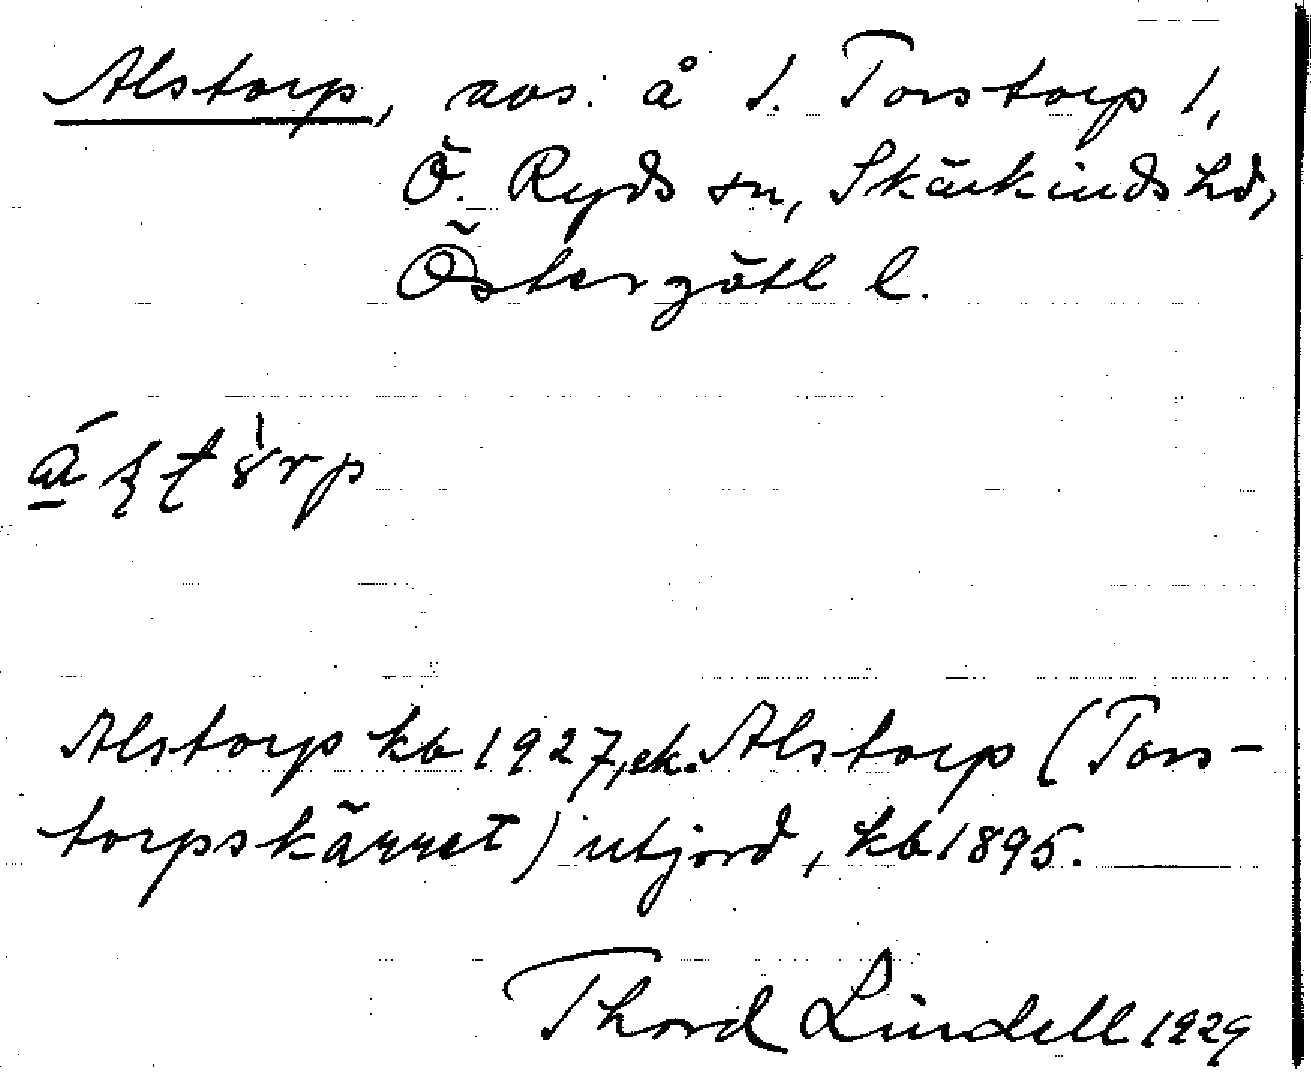 Alstorp, avs. å S. Torstorp 1,
Ö. Ryds sn, Skärkinds hd,
Östergötl l.
Alstorp kb 1927, ek. Alstorp (Tors-
torpskärret) utjord, kb 1895.
Thord Lindell 1929